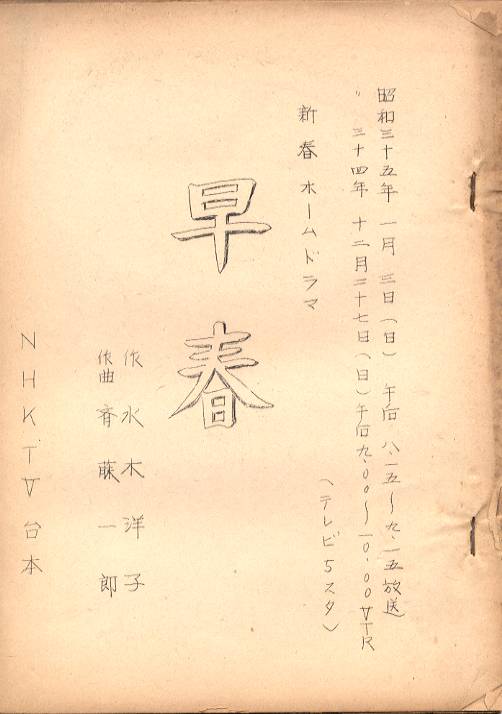 昭和三十五年 一月 三日(日) 午后 八、一五〜九、一五放送
〃 三十四年 十二月二十七日(日)午后九、00〜一0、00VTR
(テレビ5スタ)
新春 ホームドラマ
早春
作 水木洋子
作曲 斉藤一郎
NHKTV台本